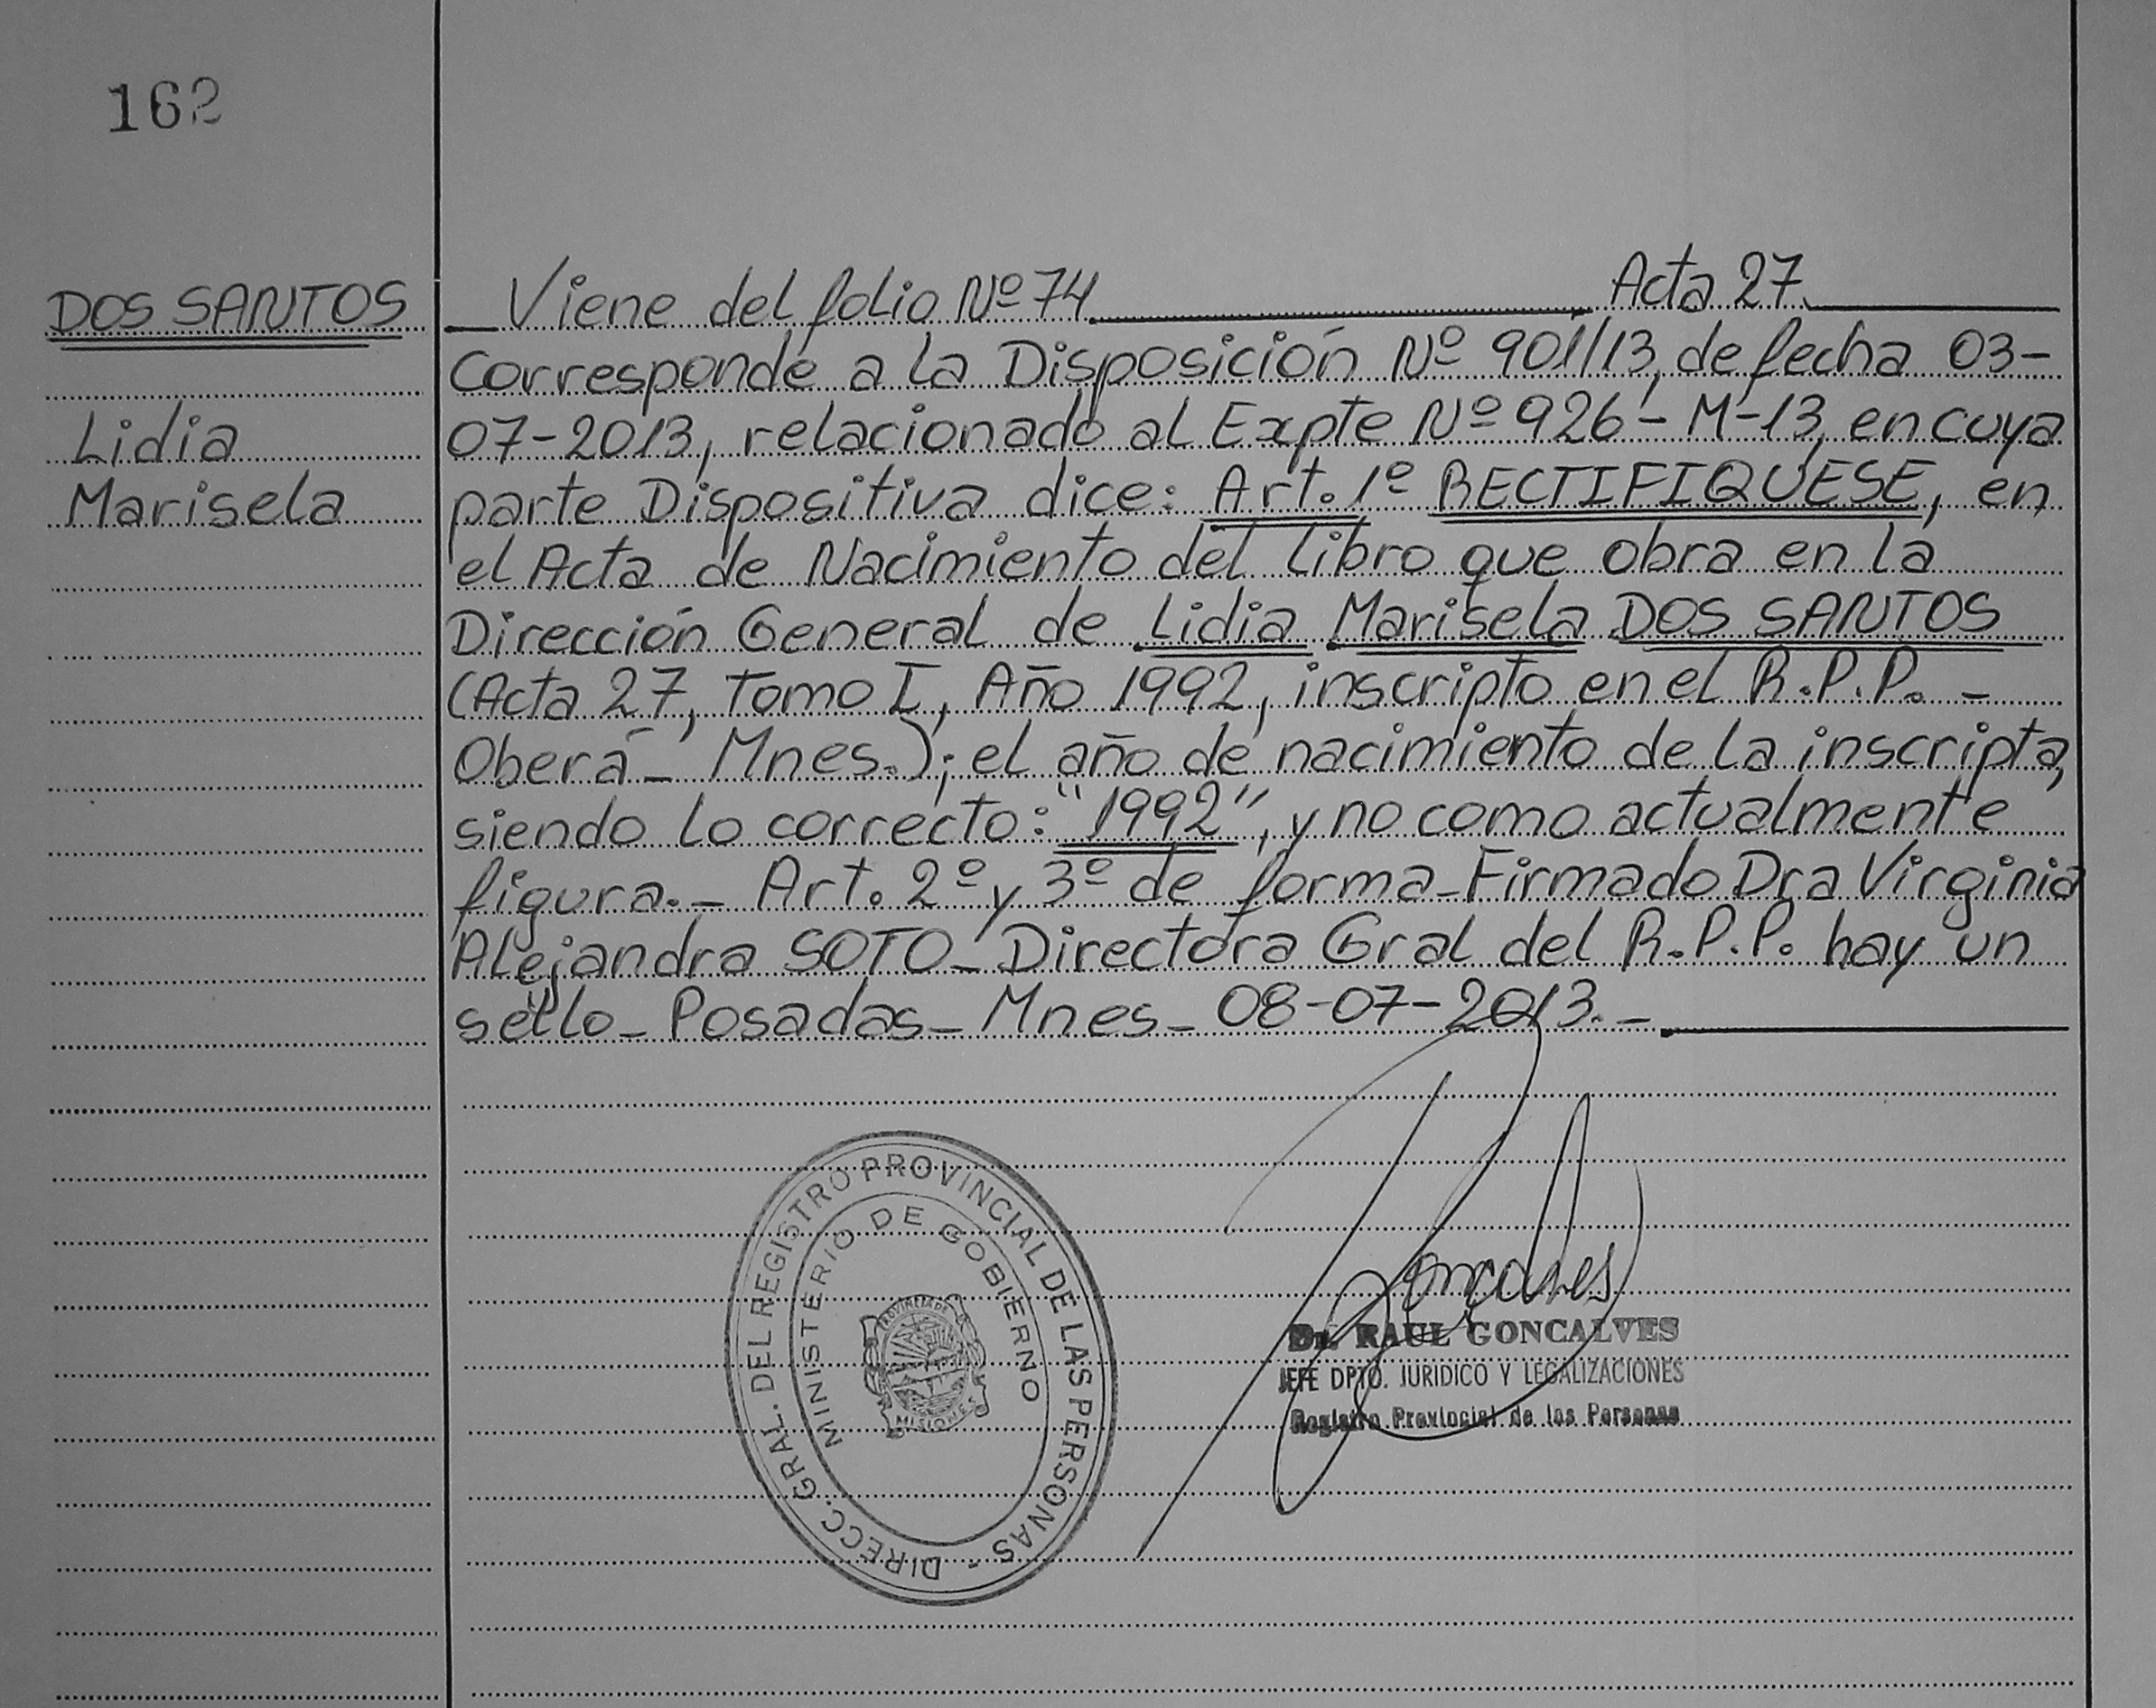 162
DOS SANTOS
Lidia
Marisela
Viene del folio Nº 74 Acta 27.
Corresponde a la Disposición Nº 901/13, de fecha 03-
07-2013, relacionado al Expte Nº 926-M-13, en cuya
parte Dispositiva dice: Art. 1º RECTIFIQUESE, en
el Acta de Nacimiento del libro que obra en la
Dirección General de Lidia Marisela DOS SANTOS
(Acta 27, Tomo I, Año 1992, inscripto en el R.P.P. -
Oberá - Mnes.); el año de nacimiento de la inscripta,
siendo lo correcto: "1992", y no como actualmente
figura. - Art. 2º y 3º de forma - Firmado Dra Virginia
Alejandra SOTO - Directora Gral del R.P.P. hay un
sello - Posadas - Mnes - 08-07-2013. -
DIRECC. GRAL. DEL REGISTRO PROVINCIAL DE LAS PERSONAS -
MINISTERIO DE GOBIERNO
PROVINCIA DE
MISIONES
Goncalves
Dr. RAUL GONCALVES
JEFE DPTO. JURIDICO Y LEGALIZACIONES
Registro Provincial de las Personas